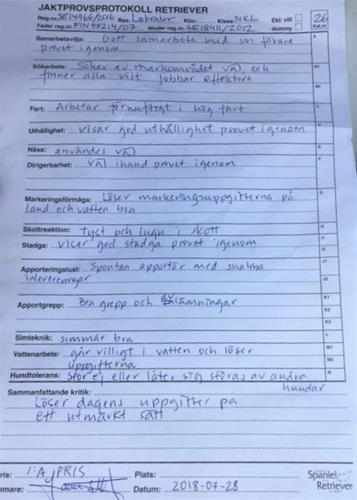 JAKTPROVSPROTOKOLL RETRIEVER
Reg.nr. SE14966/2016 Ras: Labrador Kön: Klass: NKL Ekl: vilt 26
Fader reg.nr. FIN57214/07 Moder reg.nr. SE18411/2012 dummy
Samarbetsvilja: Gott samarbete med sin förare
provet igenom
Sökarbete: Söker av markområdet väl, och
finner alla vilt jobbar effektivt
Fart: Arbetar förnuftigt i hög fart
Uthållighet: visar god uthållighet provet igenom
Näsa: användes väl
Dirigerbarhet: väl ihand provet igenom
Markeringsförmåga: Löser markeringsuppgifterna på
land och vatten bra
Skottreaktion: Tyst och lugn i skott
Stadga: visar god stadga provet igenom
Apporteringslust: Spontan apportör med snabba
inlevereringar
Apportgrepp: Bra grepp och avlämningar
Simteknik: simmar bra
Vattenarbete: går villigt i vatten och löser
uppgifterna
Hundtolerans: Stör ej eller låter sig störas av andra
hundar
Sammanfattande kritik:
Löser dagens uppgifter på
ett utmärkt sätt
ris: 1:A PRIS Plats:
omare: Datum: 2018-07-28
Spaniel
Retriever